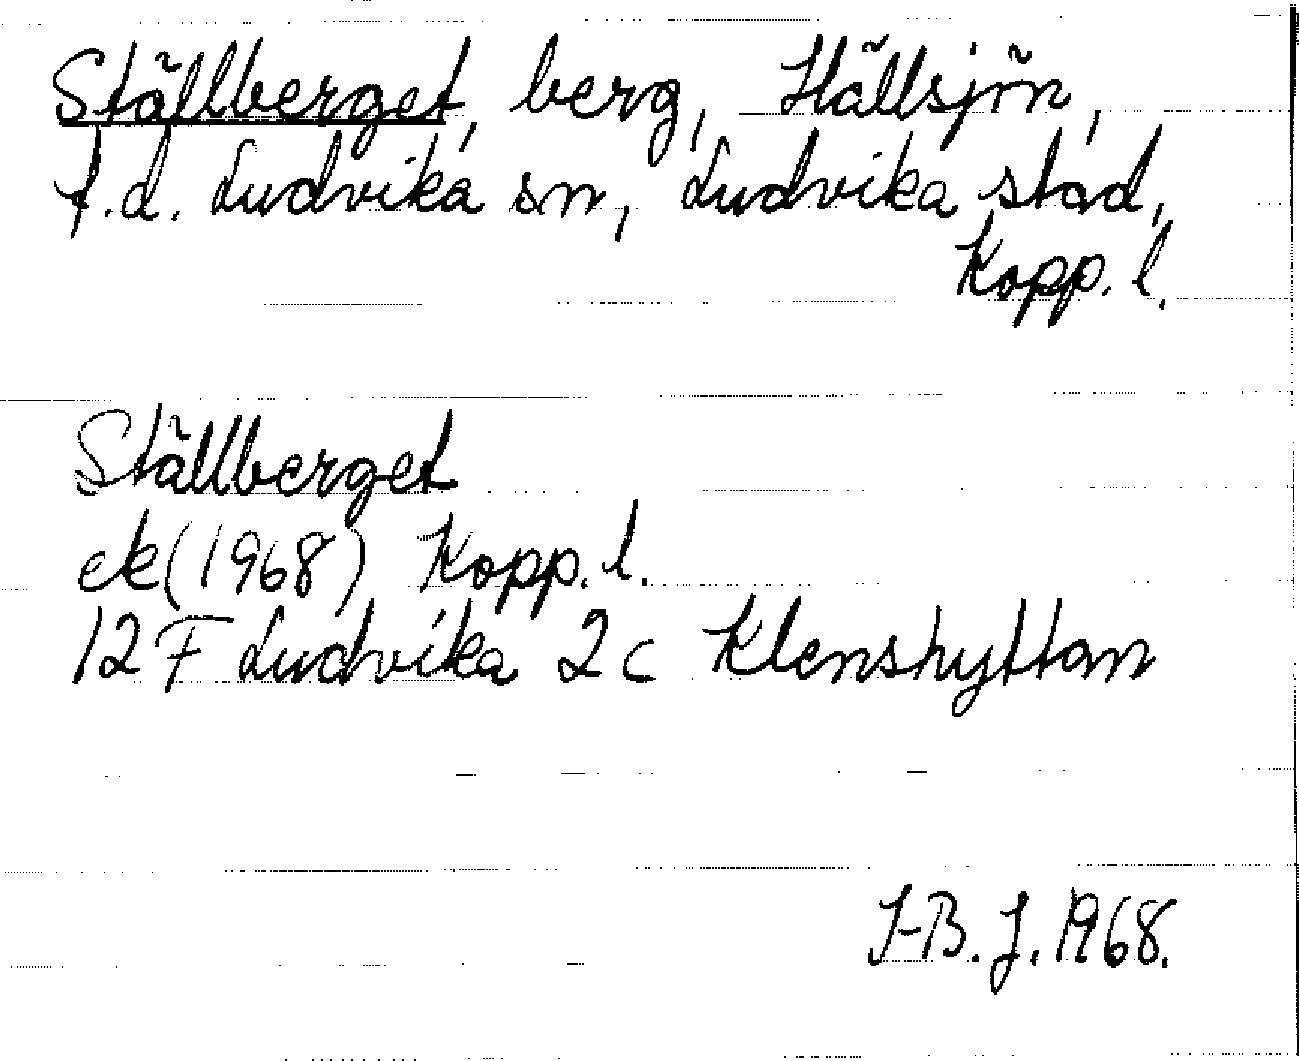 Ställberget, berg, Hällsjön,
f.d. Ludvika sn, Ludvika stad,
Kopp. l.
Ställberget
ek (1968) Kopp. l.
12 F Ludvika 2c Klenshyttan
I-B. J. 1968.